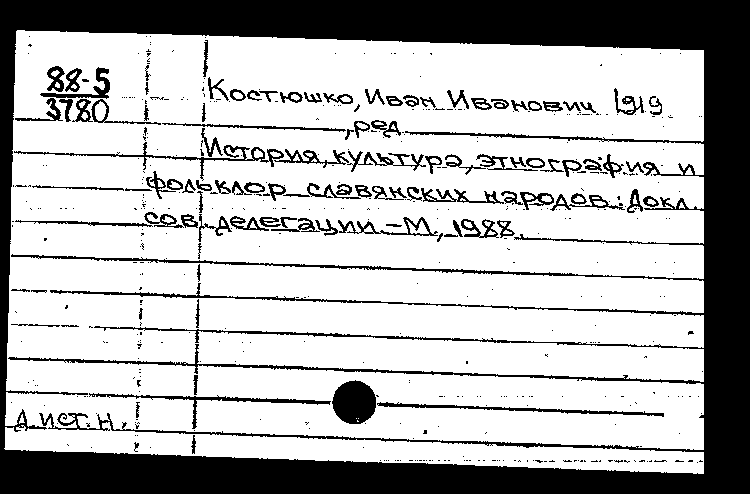 88-5
3780
Костюшко, Иван Иванович 1919
, ред.
История, культура, этнография и
фольклор славянских народов: Докл.
сов. делегации. -М., 1988.
д. ист. н.